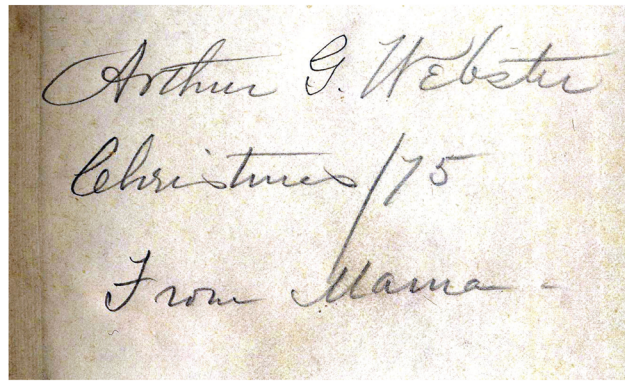 Arthur G. Webster
Christmas/75
From Mama -